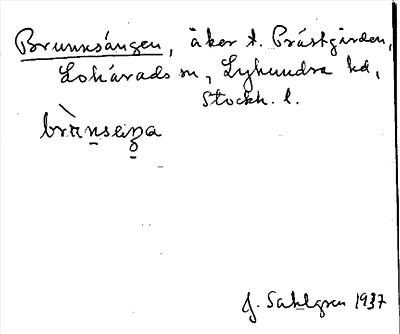 Brunnsängen, åker t. Prästgården,
Lohärads sn, Lyhundra hd,
Stockh. l.
brὰn̲seŋa
J. Sahlgren 1937